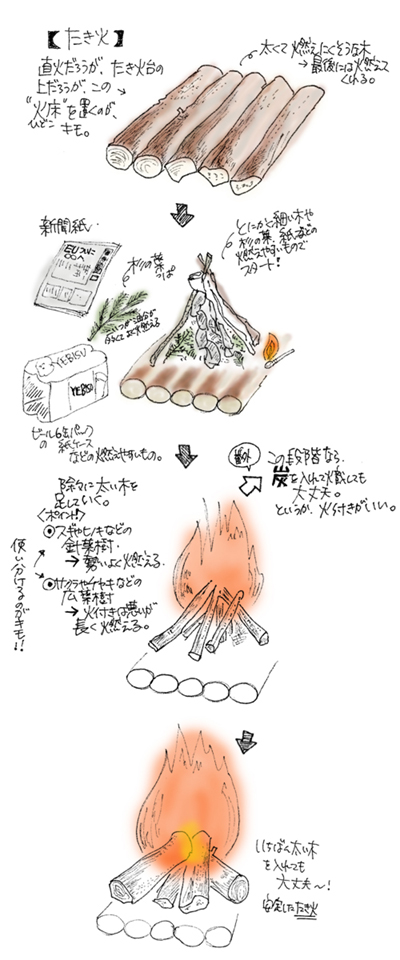 【たき火】
直火だろうが、たき火台の
上だろうが、この
"火床"を置くのが、
ひどこ
キモ。
太くて燃えにくそうな木
→最後には燃えて
くれる。
新聞紙
EUついに
〇〇へ
杉の葉
っぱ
とにかく細い木や
杉の葉、紙などの
燃えやすいもので
スタート!
YEBISU
YEBISU
ビール6缶パック
の紙ケース
などの燃えやすいもの。
除々に太い木を
足していく。
<ポイント!>
◎スギやヒノキなどの
針葉樹・
→勢いよく燃える。
◎サクラやケヤキなどの
広葉樹
→火付きは悪いが
長く燃える。
使い分けるのがキモ!!
番外
この段階なら、
炭を入れて火熾しても
大丈夫。
というか、火付きがいい。
いちばん太い木
を入れても
大丈夫〜!
安定したたき火